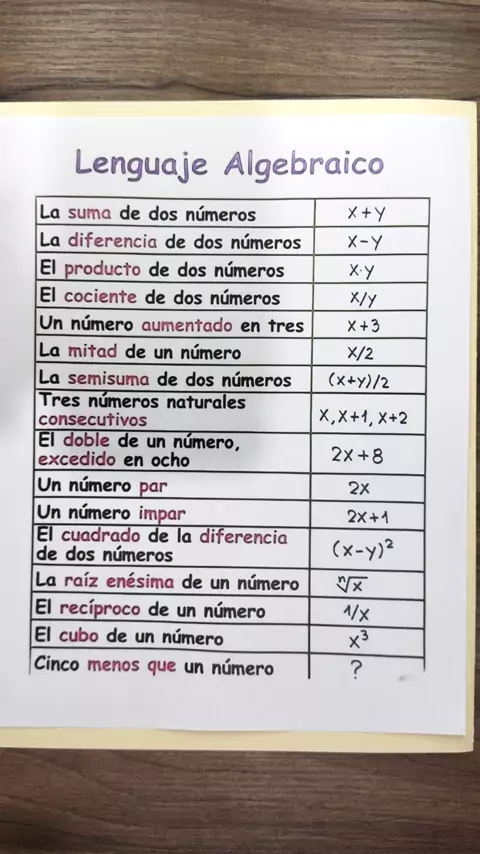 Lenguaje Algebraico
La suma de dos números x+y
La diferencia de dos números x-y
El producto de dos números x·y
El cociente de dos números x/y
Un número aumentado en tres x+3
La mitad de un número x/2
La semisuma de dos números (x+y)/2
Tres números naturales
consecutivos x,x+1, x+2
El doble de un número,
excedido en ocho 2x+8
Un número par 2x
Un número impar 2x+1
El cuadrado de la diferencia
de dos números (x-y)²
La raíz enésima de un número ⁿ√x
El recíproco de un número 1/x
El cubo de un número x³
Cinco menos que un número ?